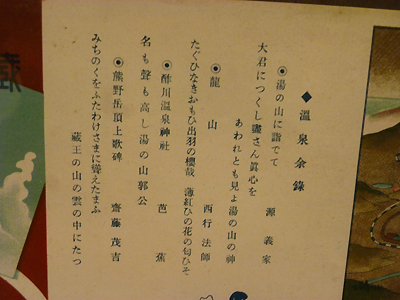 ◆溫泉余錄
◉湯の山に詣でて　源義家
大君につくし盡さん眞心を
あわれとも見よ湯の山の神
◉龍山　西行法師
たぐひなきおもひ出羽の櫻哉　薄紅ひの花の匂ひぞ
◉酢川溫泉神社　芭蕉
名も聲も高し湯の山郭公
◉熊野岳頂上歌碑　齋藤茂吉
みちのくをふたわけざまに聳えたまふ
藏王の山の雲の中にたつ
藏